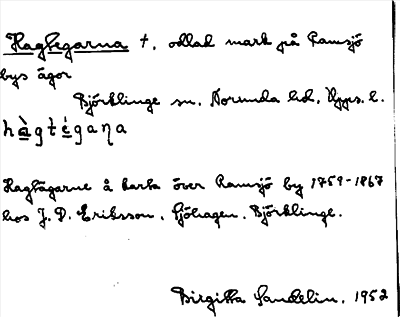 Hagtegarna †, odlad mark på Ramsjö
bys ägor
Björklinge sn, Norunda hd, Upps. l.
hàgtégaɳa
Hagtägarne å karta över Ramsjö by 1759-1867
hos J. D. Eriksson, Sjöhagen, Björklinge.
Birgitta Sandelin, 1952